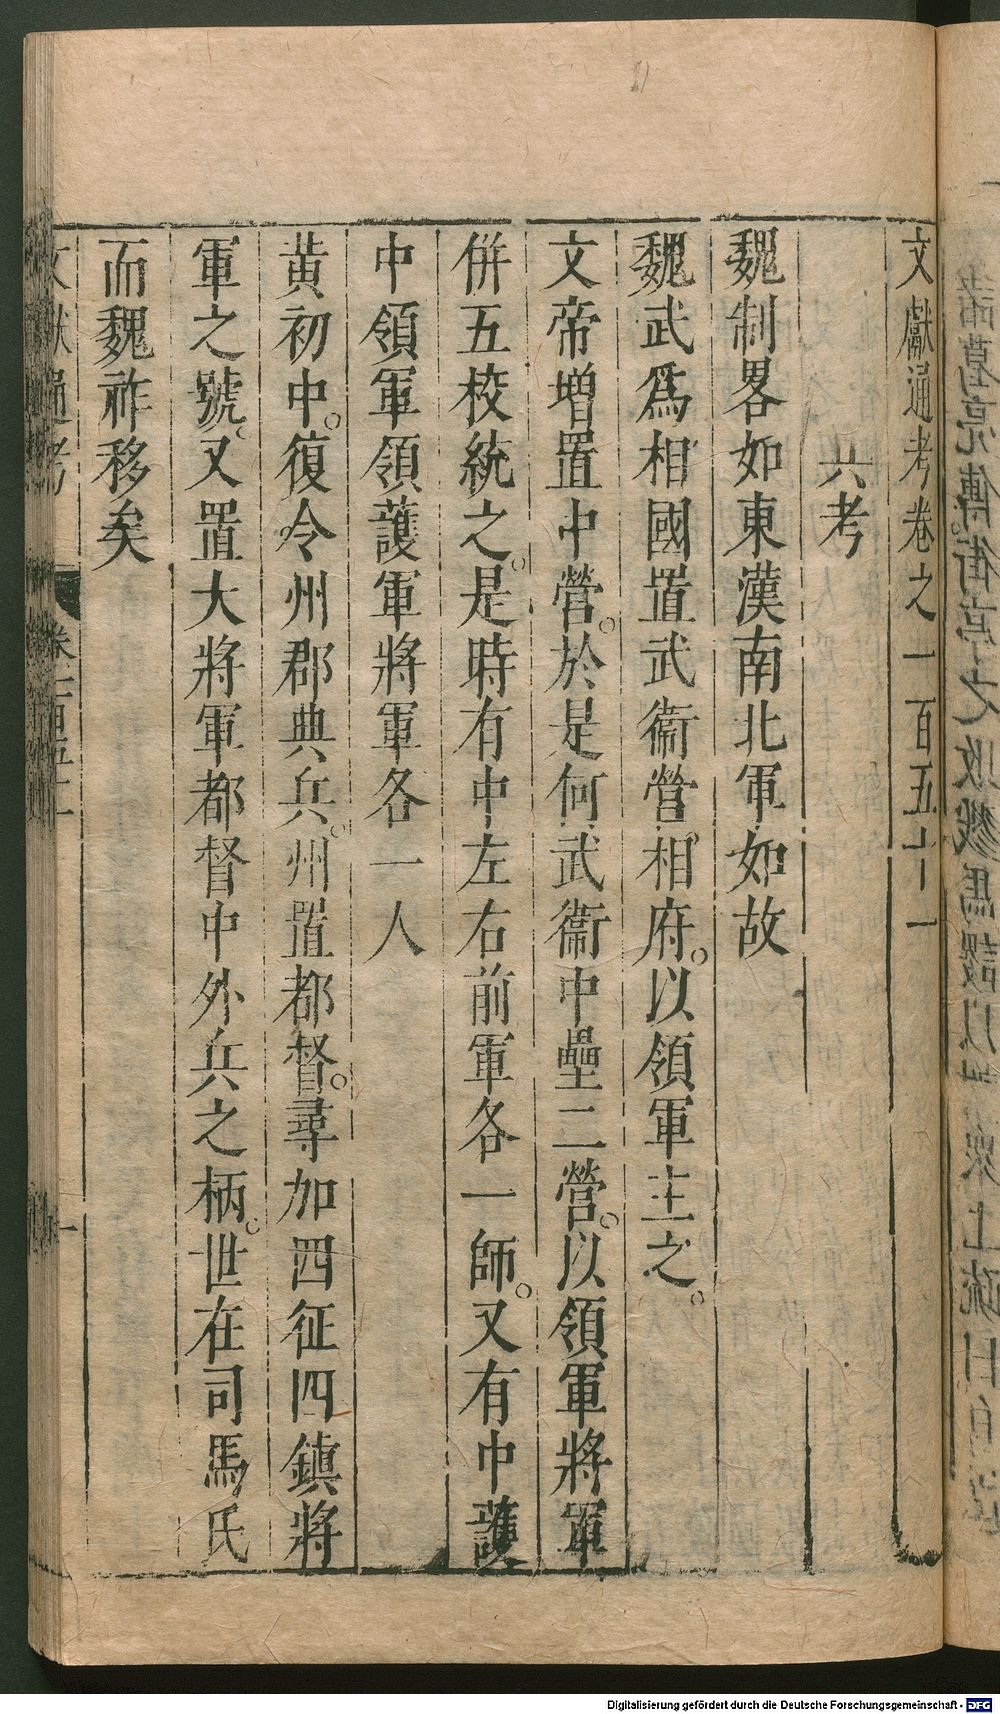 文獻通考卷之一百五十一
兵考
魏制畧如東漢南北軍如故
魏武爲相國置武衞營相府。以領軍主之。
文帝增置中營。於是何武衞中壘二營。以領軍將軍
併五校統之。是時有中左右前軍各一師。又有中護
中領軍領護軍將軍各一人
黃初中。復令州郡典兵。州置都督。尋加四征四鎮將
軍之號。又置大將軍都督中外兵之柄。世在司馬氏
而魏祚移矣
文獻通考
卷一百五十一
一
Digitalisierung gefördert durch die Deutsche Forschungsgemeinschaft - DFG